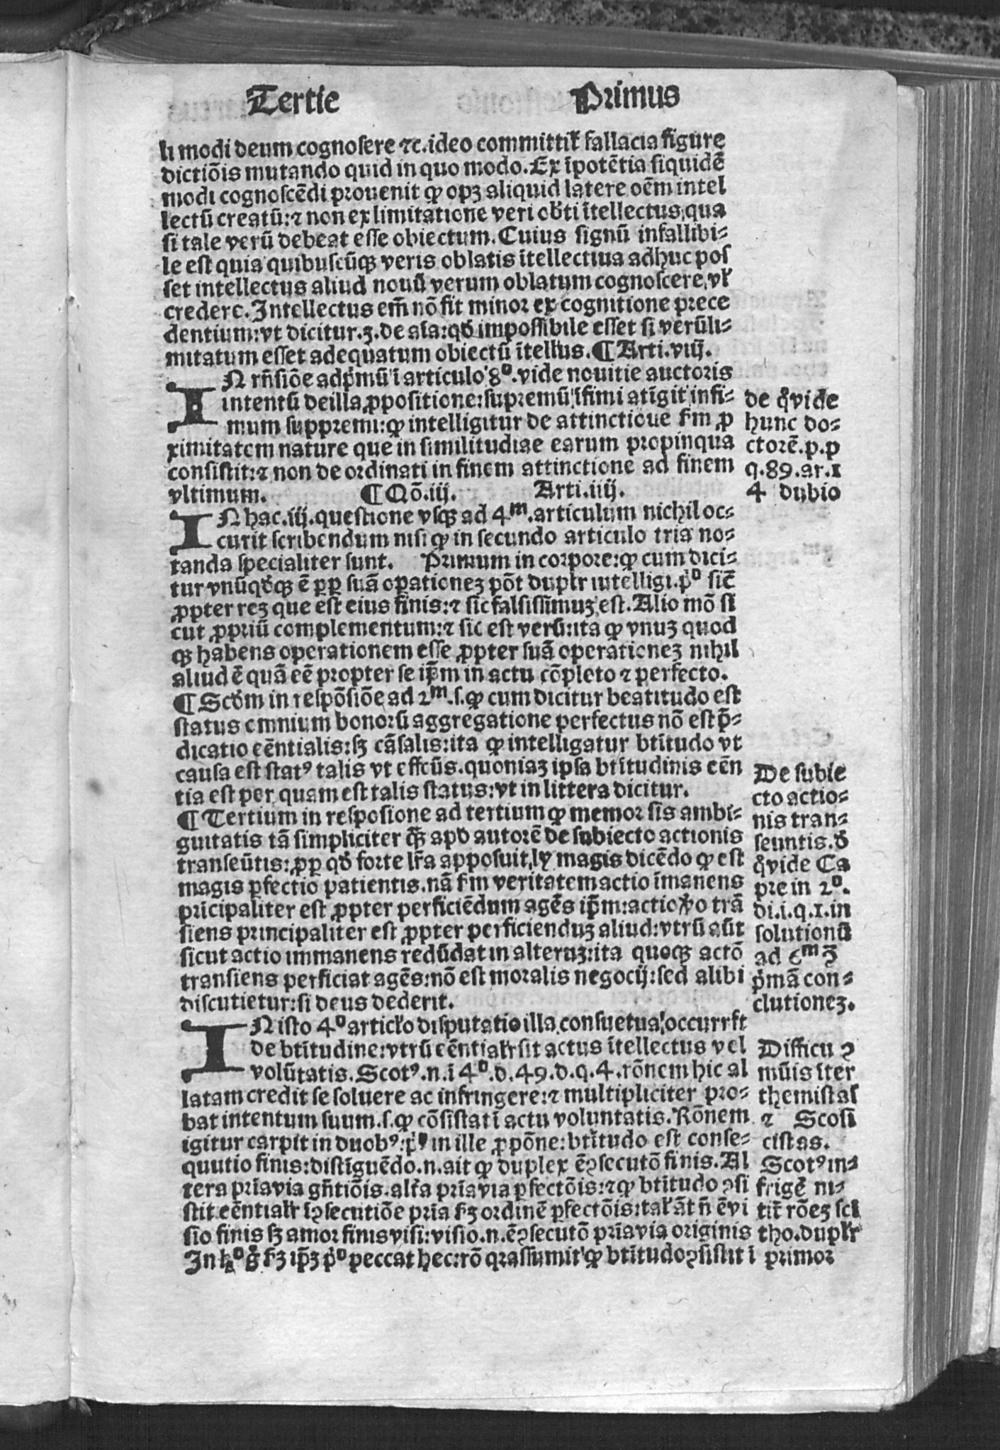 Tertie Primus
li modi deum cognosere ⁊c. ideo committit᷑ fallacia figure
dictiōis mutando quid in quo modo. Ex īpotētia siquidē
modi cognoscēdi prouenit ꝙ opꝫ aliquid latere oēm intel
lectū creatū: ⁊ non ex limitatione veri obti ītellectus, qua
si tale verū debeat esse obiectum. Cuius signū infallibi-
le est quia quibuscūqꝫ veris oblatis ītellectiua adhuc pos
set intellectus aliud nouū verum oblatum cognoscere, vl̓
credere. Intellectus em̄ nō fit minor ex cognitione prece
dentium: vt dicitur. 3. de aīa: qd̓ impossibile esset si verūli-
mitatum esset adequatum obiectū ītellus. ¶ Arti. viij.
IN rn̄siōe ad pmū ī articulo 8º. vide nouitie auctoris
intentū de illa ꝓpositione: supremū īfimi atigit infi-
mum suppremi: ꝙ intelligitur de attinctioue ẜm ꝓ
ximitatem nature que in similitudiae earum propinqua
consistit: ⁊ non de ordinati in finem attinctione ad finem
vltimum. ¶ Qō. iij. Arti. iiij.
IN hac. iij. questione vsqꝫ ad 4ᵐ. articulum nichil oc-
curit scribendum nisi ꝙ in secundo articulo tria no-
tanda specialiter sunt. Primum in corpore: ꝙ cum dici-
tur vnūqd̓qꝫ ē ꝓpꝑ suā oꝑationeꝫ pōt duplr iutelligi. pº sic̄
ꝓpter reꝫ que est eius finis: ⁊ sic falsissimuꝫ est. Alio mō si
cut ꝓpriū complementum: ⁊ sic est verū: ita ꝙ vnuꝫ quod
qꝫ habens operationem esse ꝓpter suā operationeꝫ nihil
aliud ē quā eē propter se ip̄m in actu cōpleto ⁊ perfecto.
¶ Scd̓m in respōsiōe ad 2ᵐ. s. ꝙ cum dicitur beatitudo est
status omnium bonorū aggregatione perfectus nō est p̄-
dicatio eēntialis: sꝫ cāsalis: ita ꝙ intelligatur bt̄itudo vt
causa est statꝰ talis vt effcūs. quoniaꝫ ipsa bt̄itudinis eēn
tia est per quam est talis status: vt in littera dicitur.
¶ Tertium in resposione ad tertium ꝙ memor sis ambi-
guitatis tā simpliciter qꝫ̄ apd autorē de subiecto actionis
transeūtis: ꝓpꝑ qd̓ forte lr̄a apposuit, lꝫ magis dicēdo ꝙ est
magis ꝑfectio patientis. nā ẜm veritatem actio īmanens
pricipaliter est ꝓpter perficiēdum agēs ip̄m: actio v̓o trā
siens principaliter est ꝓpter perficienduꝫ aliud: vtrū aūt
sicut actio immanens redūdat in alteruꝫ: ita quoqꝫ actō
transiens perficiat agēs: nō est moralis negocij: sed alibi
discutietur: si deus dederit.
IN isto 4º articl̓o disputatio illa consueta occurrit
de bt̄itudine: vtrū eēntialr̄ sit actus ītellectus vel
volūtatis. Scotꝰ. n. ī 4º. d. 49. d. q. 4. rōnem hic al
latam credit se soluere ac infringere: ⁊ multipliciter pro-
bat intentum suum. s. ꝙ cōsistat ī actu voluntatis. Rōnem
igitur carpit in duobꝰ. pº in ille ꝓpōne: bt̄itudo est conse-
quutio finis: distīguēdo. n. ait ꝙ duplex ē ꝯsecutō finis. Al
tera prīa via gn̄tiōis. alt̓a prīa via ꝑfectōis: ⁊ ꝙ bt̄itudo ꝯsi
stit eēntialr̄ ī ꝯsecutiōe pria ẜꝫ ordinē ꝑfectōis: talr̄ āt n̄ ē vi
sio finis sꝫ amor finis visi: visio. n. ē ꝯsecutō prīa via originis
In hº g̊ ẜꝫ ip̄ꝫ pº peccat hec: rō qr assumit ꝙ bt̄itudo ꝯsistit ī
de q̓ vide
hunc do-
ctorē. p. p
q. 89. ar. 1
4 dubio
De subie
cto actio-
nis tran-
seuntis. d̓
q̓ vide Ca
pre in 2º.
di. i. q. 1. in
solutionū
ad 6ᵐ ꝫ
pmā con-
clutioneꝫ.
Difficu ꝯ
mūis īter
themistas
⁊ Scosi
cistas.
Scotꝰ in-
frigē ni-
tit᷑ rōeꝫ sci
tho. duplr̄
primor